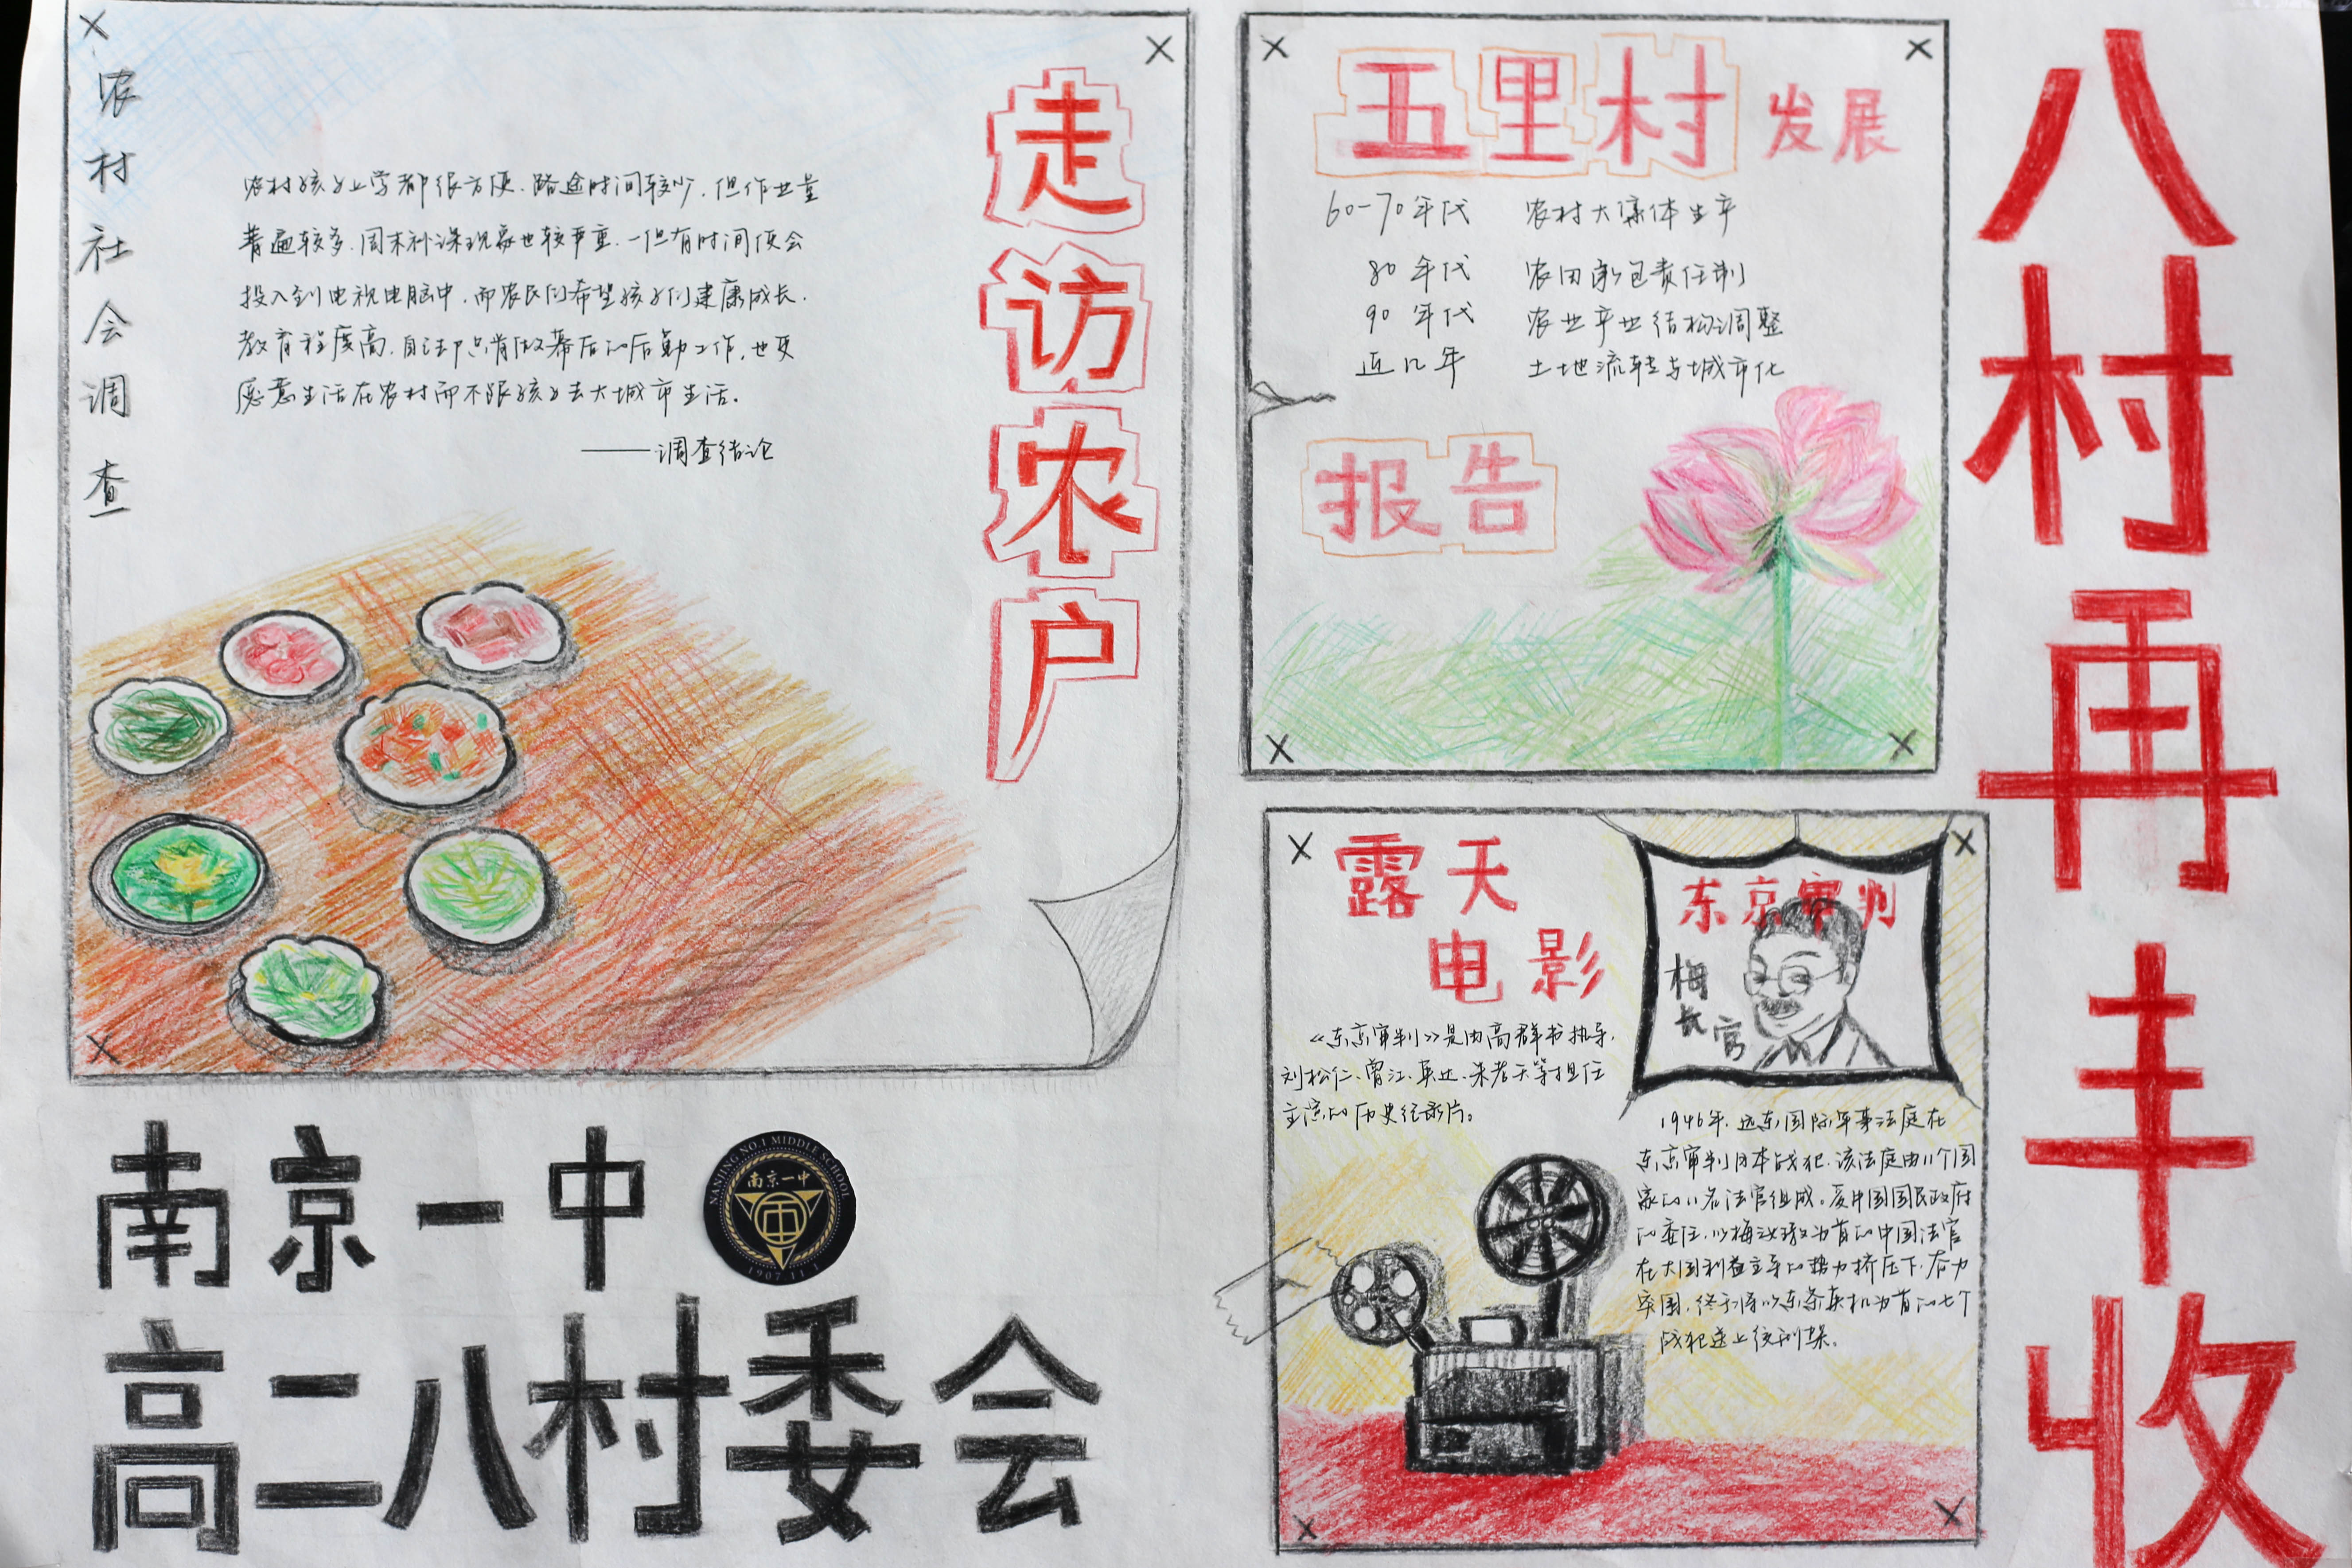 农村社会调查
走访农户
农村孩子上学都很方便.路途时间较少.但作业量
普遍较多.周末补课现象也较严重.一但有时间便会
投入到电视电脑中.而农民们希望孩子们健康成长.
教育程度高.自己却只肯做幕后的后勤工作.也更
愿意生活在农村而不跟孩子去大城市生活。
——调查结论
五里村 发展
60-70年代 农村大集体生产
80年代 农田承包责任制
90年代 农业产业结构调整
近几年 土地流转与城市化
报告
露天
电影
东京审判
梅长官
《东京审判》是由高群书执导.
刘松仁、曾江、英达、朱孝天等担任
主演的历史纪录片。
1946年.远东国际军事法庭在
东京审判日本战犯.该法庭由11个国
家的11名法官组成。受中国国民政府
的委任.以梅汝璈为首的中国法官
在大国利益主导的势力挤压下.
终于将以东条英机为首的七个
战犯送上绞刑架。
八村再丰收
南京一中
NANJING NO.1 MIDDLE SCHOOL
南京一中
1907.11.1
高二八村委会